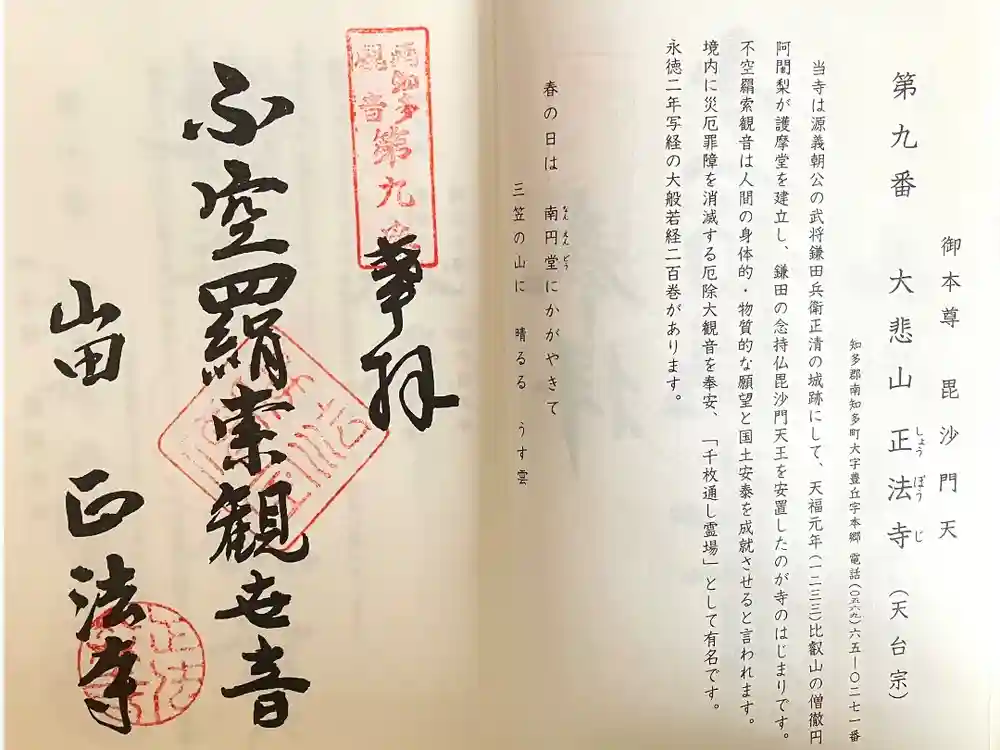 御本尊 毘沙門天
第九番 大悲山 正法寺 (天台宗)
しょうぼうじ
知多郡南知多町大字豊丘字本郷 電話(〇五六九)六五―〇二七一番
当寺は源義朝公の武将鎌田兵衛正清の城跡にして、天福元年(一二三三)比叡山の僧徹円
阿闍梨が護摩堂を建立し、鎌田の念持仏毘沙門天王を安置したのが寺のはじまりです。
不空羂索観音は人間の身体的・物質的な願望と国土安泰を成就させると言われます。
境内に災厄罪障を消滅する厄除大観音を奉安、「千枚通し霊場」として有名です。
永徳二年写経の大般若経二百巻があります。
春の日は 南円堂にかがやきて
なんえんどう
三笠の山に 晴るる うす雲
南知多
観音
第九番
奉拝
不空羂索観世音
山田 正法寺